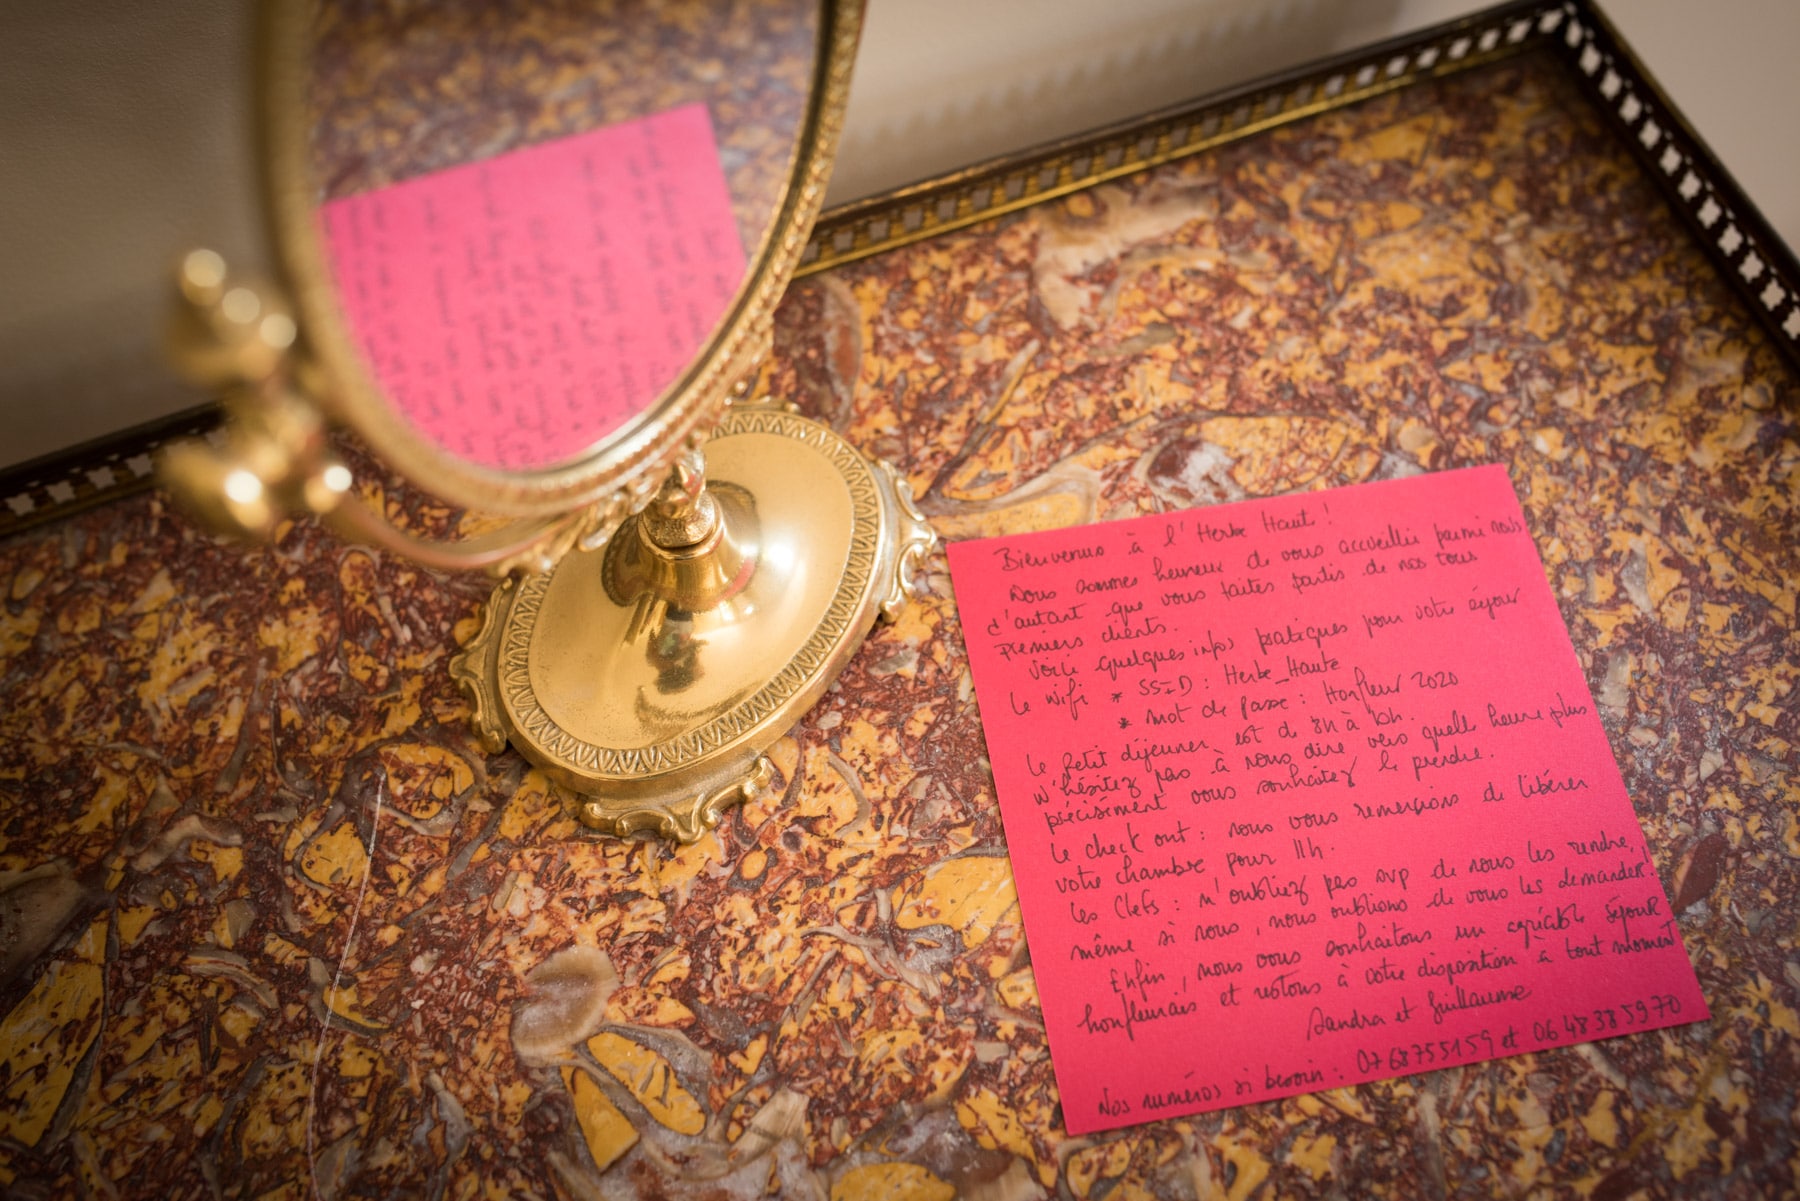 Bienvenus à l'Herbe Haute !
Nous sommes heureux de vous accueillir parmi nous
d'autant que vous faites partis de nos tous
premiers clients.
Voici quelques infos pratiques pour votre séjour
Le wifi * SSID : Herbe_Haute
* Mot de passe : Honfleur 2020
Le petit déjeuner est de 8h à 10h.
N'hésitez pas à nous dire vers quelle heure plus
précisément vous souhaitez le prendre.
Le check out : nous vous remercions de libérer
votre chambre pour 11h.
Les Clefs : n'oubliez pas svp de nous les rendre,
même si nous, nous oublions de vous les demander.
Enfin, nous vous souhaitons un agréable séjour
honfleurais et restons à votre disposition à tout moment
Sandra et Guillaume
Nos numéros si besoin : 07 68 75 51 59 et 06 48 38 59 70